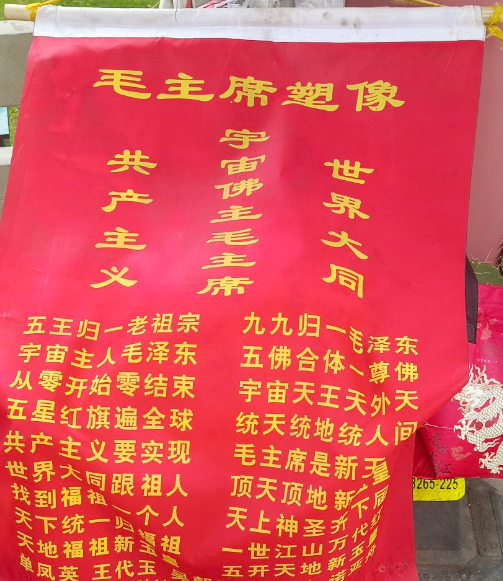 毛主席塑像
共产主义
宇宙佛主毛主席
世界大同
五王归一老祖宗
宇宙主人毛泽东
从零开始零结束
五星红旗遍全球
共产主义要实现
世界大同跟祖人
找到福祖一个人
天下统一归福祖
天地福祖新玉
单凤英王代玉
九九归一毛泽东
五佛合体一尊佛
宇宙天王天外天
统天统地统人间
毛主席是新
顶天顶地新
天上神圣齐下
一世江山万代
五开天地新
8265-225